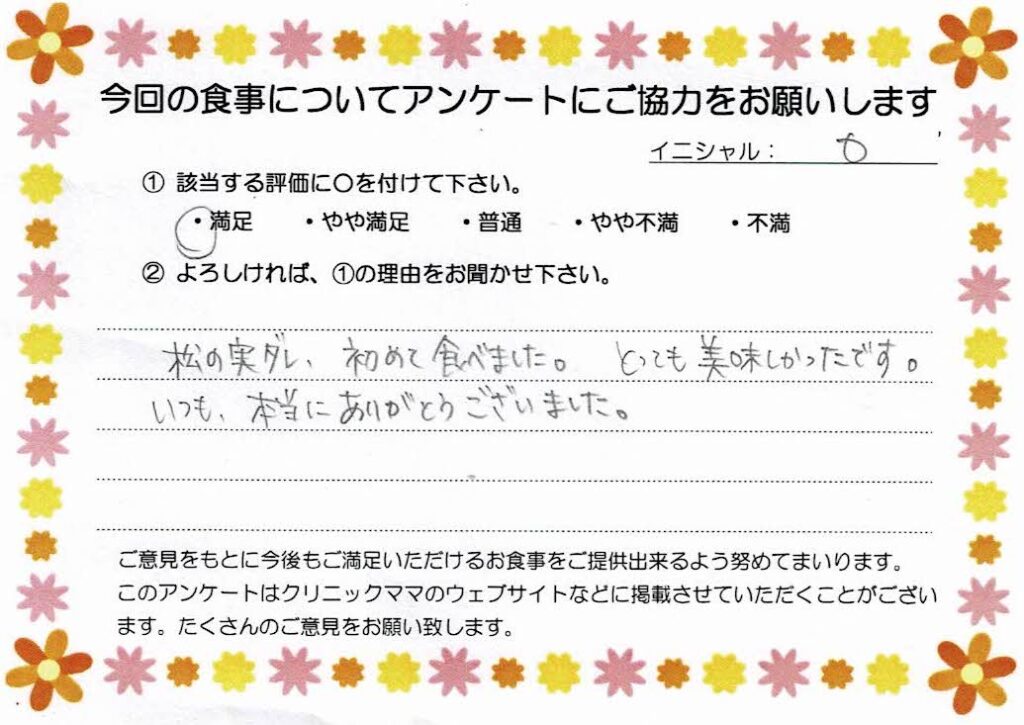 今回の食事についてアンケートにご協力をお願いします
イニシャル：
① 該当する評価に〇を付けて下さい。
・満足 ・やや満足 ・普通 ・やや不満 ・不満
② よろしければ、①の理由をお聞かせ下さい。
松の実ダレ、初めて食べました。 とっても美味しかったです。
いつも、本当にありがとうございました。
ご意見をもとに今後もご満足いただけるお食事をご提供出来るよう努めてまいります。
このアンケートはクリニックママのウェブサイトなどに掲載させていただくことがござい
ます。たくさんのご意見をお願い致します。